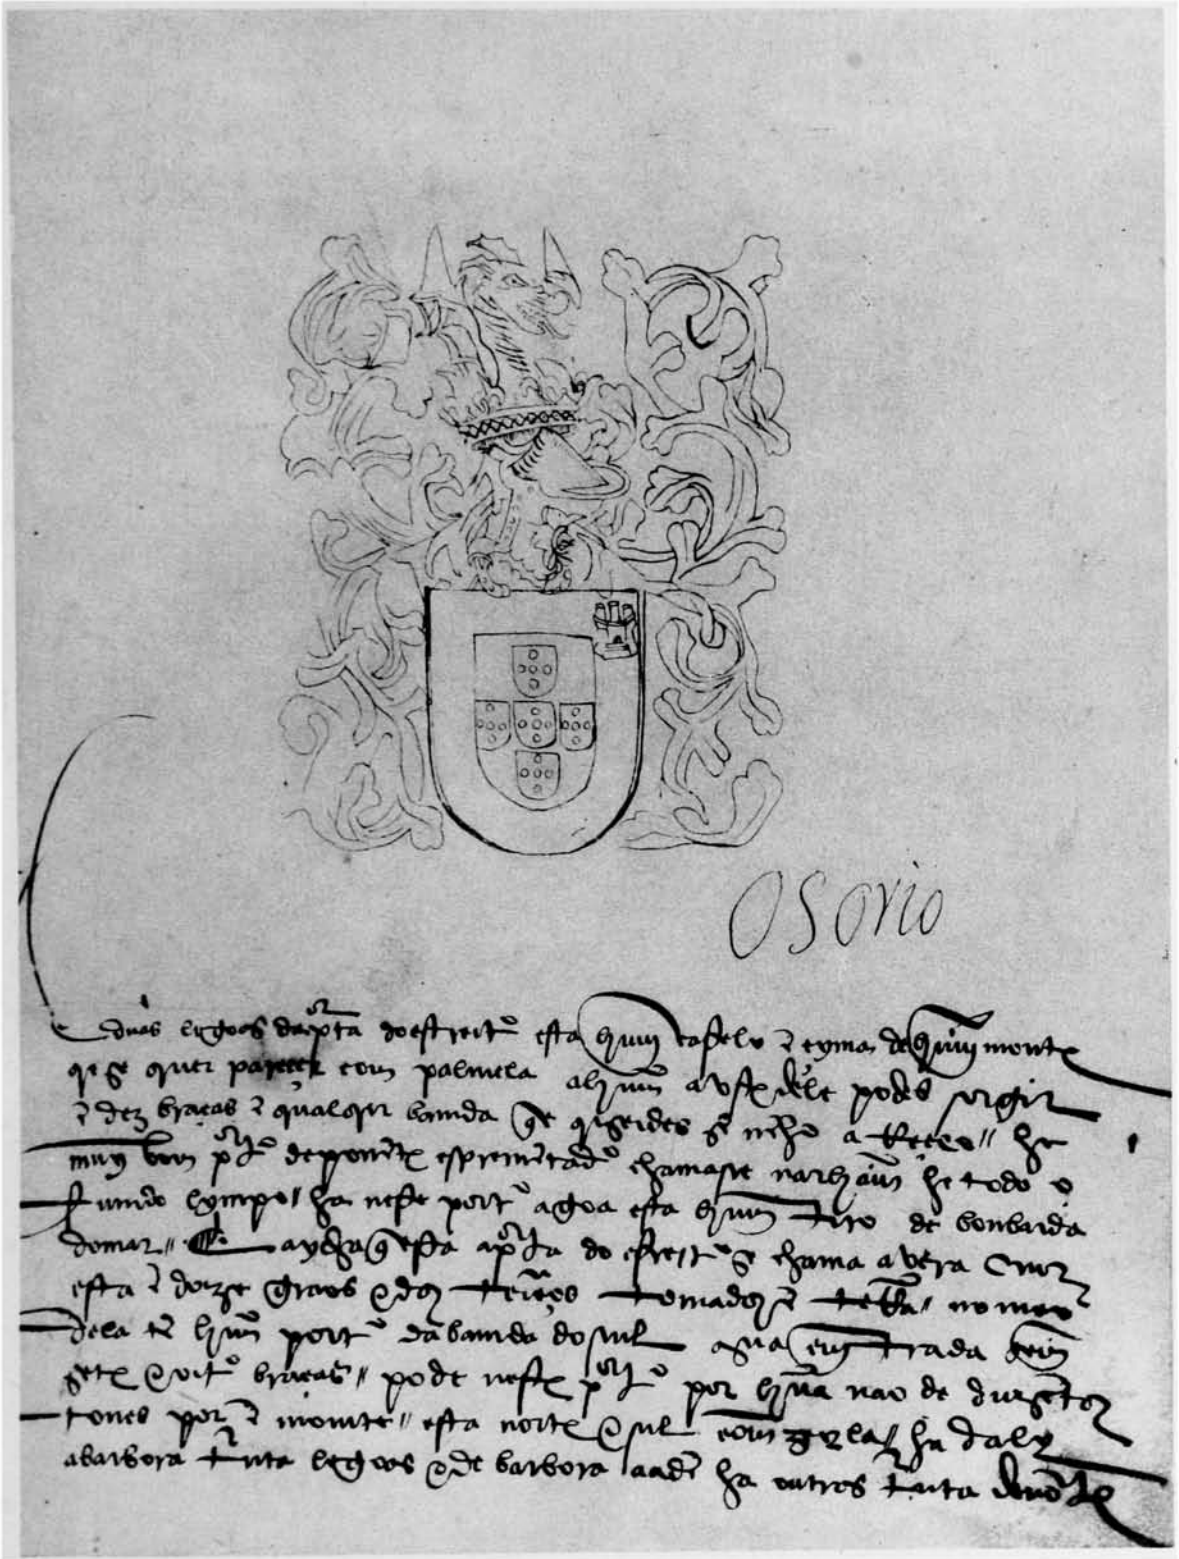 Osorio
duas legoas da porta do estreito esta huum castelo ē cyma de huum monte
que se quer parecer com palmela alhuum a vste dele podes sorgir
ē dez braças ē qualquer bamda que quiserides sē nehū a Receo // he
muy bom porto de ponēte espremētado chamasse he todo o
fumdo lympo // ha neste porto agoa esta huum tiro de bonbarda
do mar // A ylha que esta a porta do estreito se chama a vera Cruz
esta ē doze graos & dos terços tomados ē terra // no meo
dela tē huum porto da bamda do sul a sua emtrada tem
sete & oito braças // pode neste porto por huūa nao de duzētos
tones por ē monte // esta norte & sul com zeyla // ha daly
a barbora trīta legoas & de barbora a adē ha outros trīta